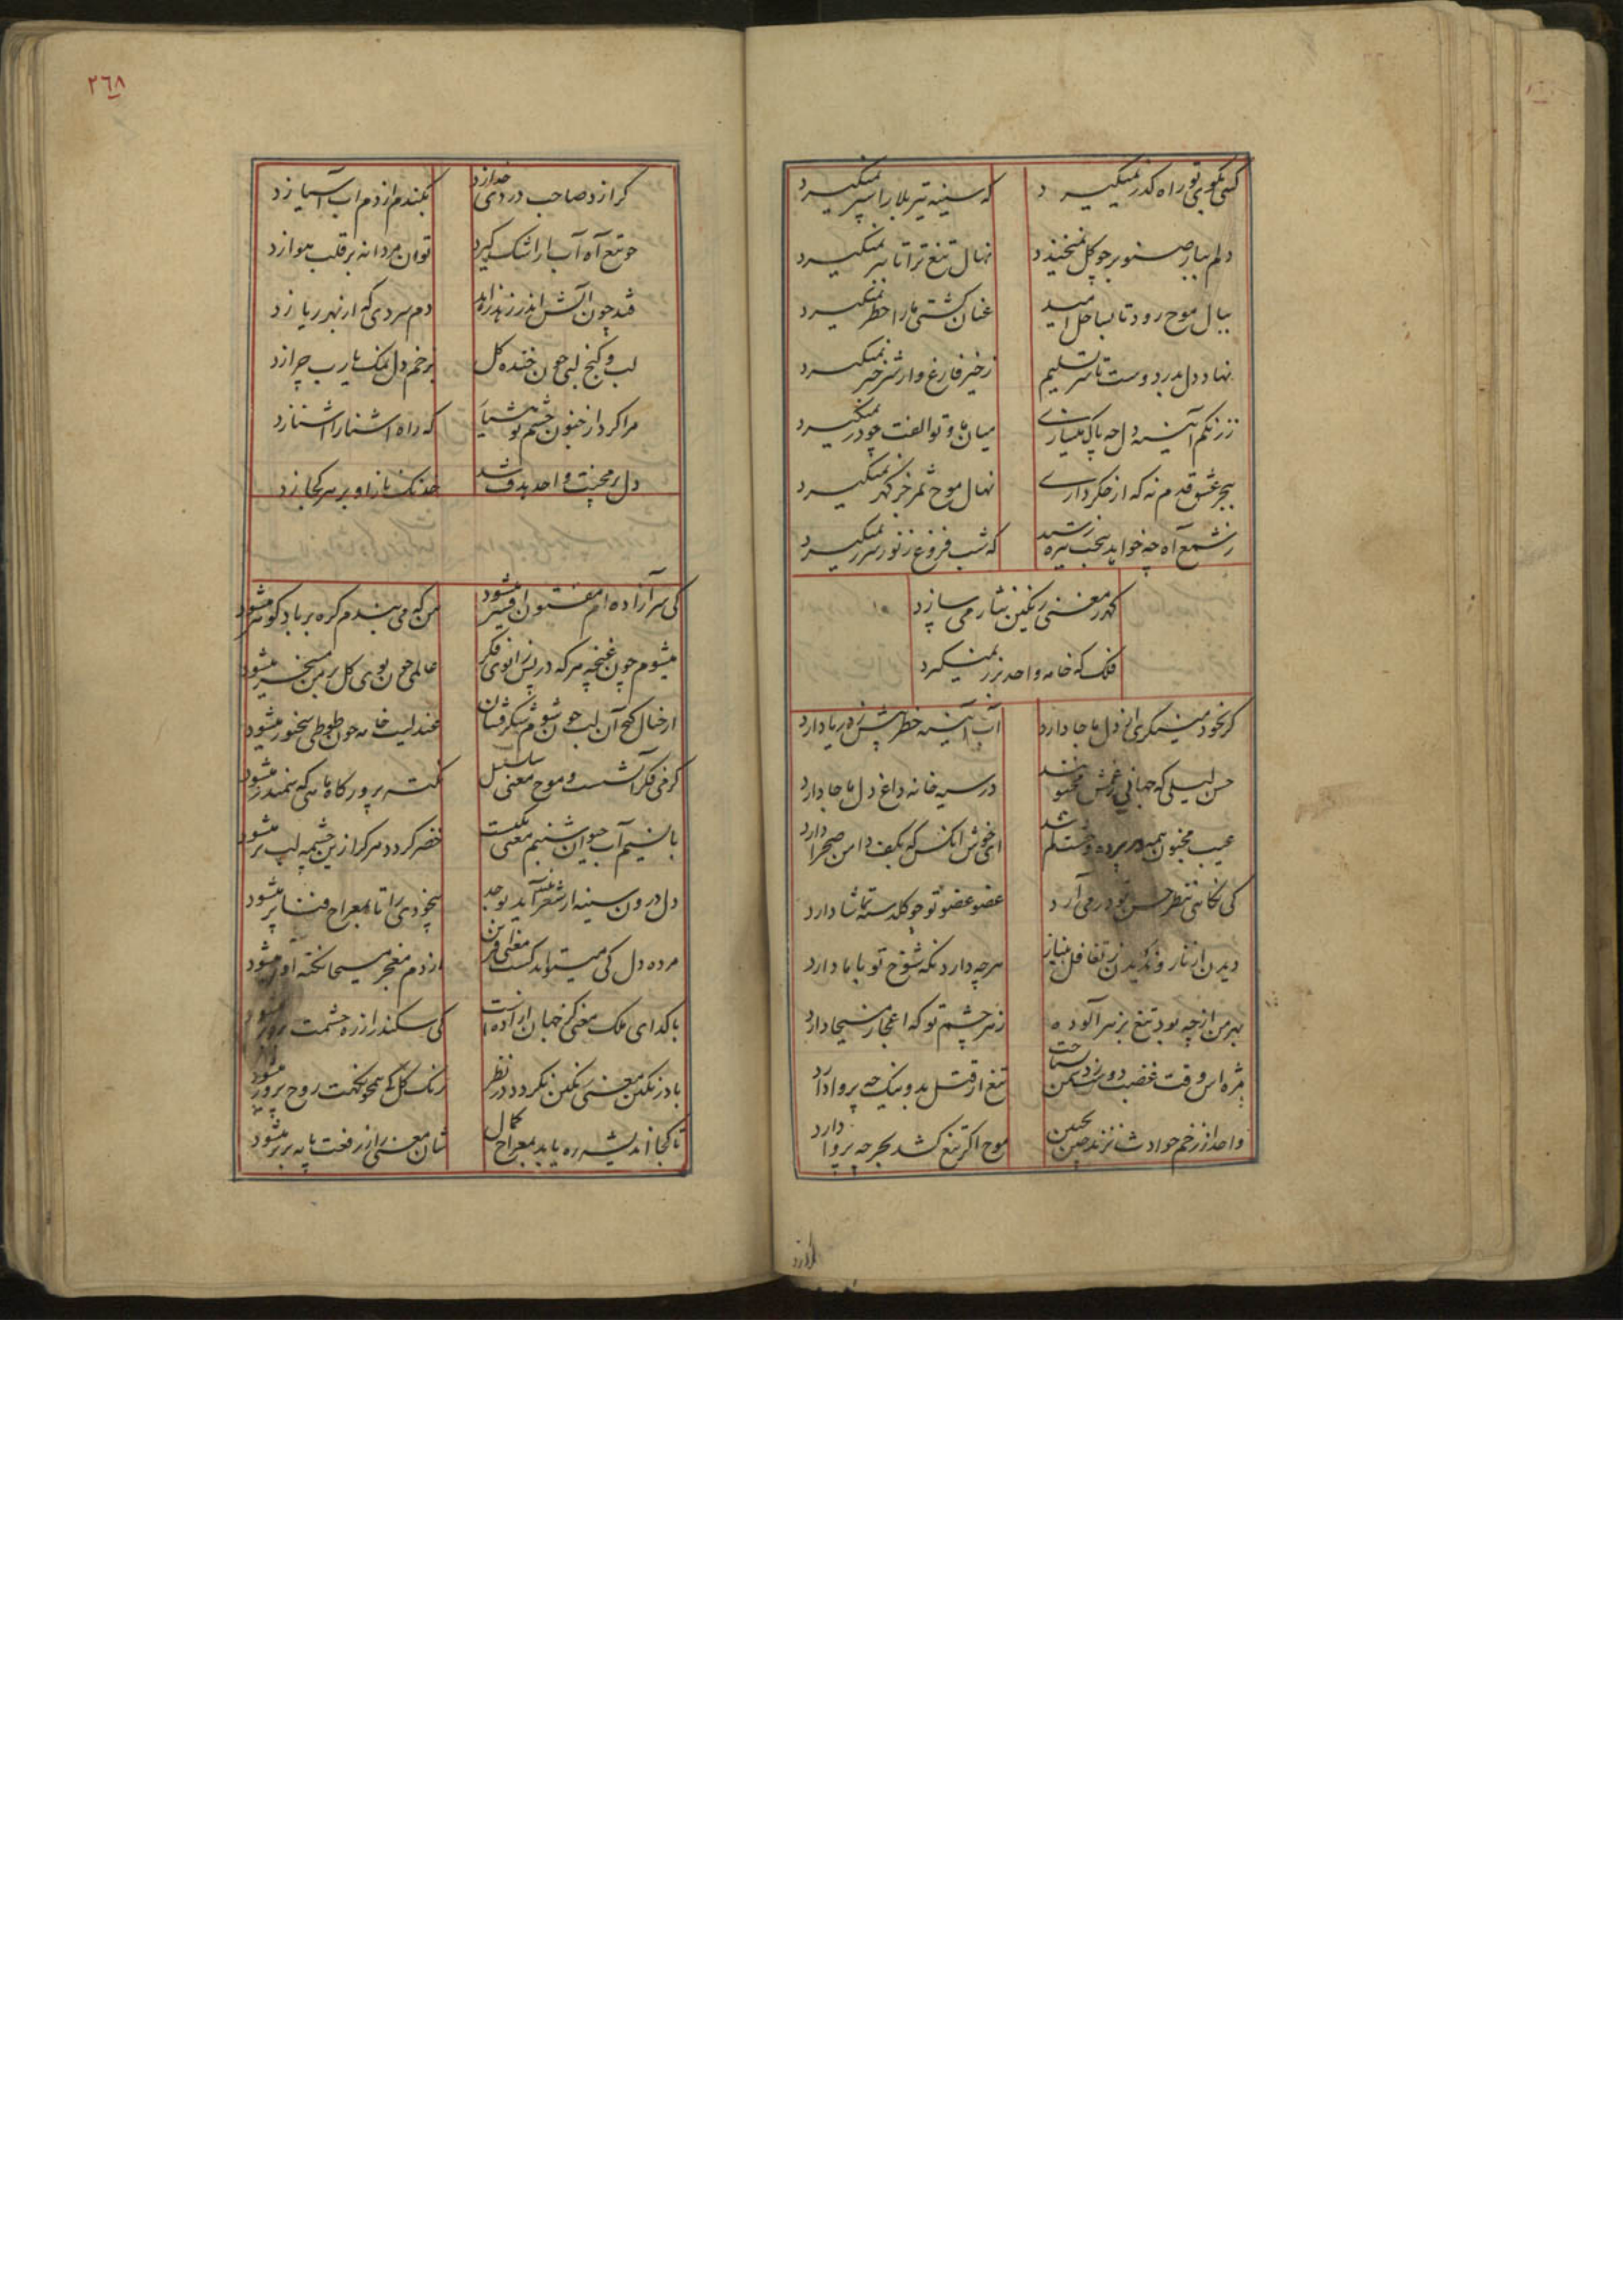 کسی بکوی تو راه کذر نمیکیرد
که سینه تیر بلا را سپر نمیکیرد
دلم بباز صنوبر چو کل نمیخندد
نهال تیغ ترا تا ببر نمیکیرد
ببال موج رود تا بساحل امید
عنان کشتی ما را خطر نمیکیرد
نهاد دل بدرد دوست تا سر تسلیم
ز خیر فارغ و از شر خبر نمیکیرد
ز زنکم آینه دل چه پاک میسازی
میان ما و تو الفت چو در نمیکیرد
ببحر عشق قدم نه که از جکرداری
نهال موج ثمر جز کهر نمیکیرد
ز شمع آه چه خواهد ببخت تیره رسید
که شب فروغ ز نور سحر نمیکیرد
کهر معنی رنکین نثار می سازد
فلک که خامه واحد بزر نمیکیرد
کر بخود مینکری از دل ما جا دارد
آب آینه خطر پیش ز دریا دارد
حسن لیلی که جهانی غمش مجنون شد
در سیه خانه داغ دل ما جا دارد
عیب مجنون همه در پرده وحشت کم شد
ای خوش آنکس که بکف دامن صحرا دارد
کی نکاهی بنظر حسن تو در می آرد
عضو عضو تو چو کلدسته تماشا دارد
دیدن از ناز و ندیدن ز تغافل بنیاز
هرچه دارد نکه شوخ تو با ما دارد
بهر من از چه بود تیغ بزهر آلوده
زهر چشم تو که اعجاز مسیحا دارد
مژه اس وقت غضب دوست ز دشمن نشناخت
تیغ از قتل بد و نیک چه پروا دارد
واحد از زخم حوادث نزند چین بجبین
موج اکر تیغ کشد بحر چه پروا دارد
کر از د
٢٦٨
کر از درد صاحب دردی خدا زد
بکندم از دم آب آسیا زد
چو تیغ آه آب از اشک کیرد
توان مردانه بر قلب هوا زد
فتد چون آتش اندر زهد زاهد
دم سردی که از بهر ریا زد
لب و کنج لبی چون خنده کل
بزخم دل نمک یارب چرا زد
مرا کرد از جنون چشم تو مشیا
که راه اشنا را اشنا زد
دل بر محنت واحد هدف شد
خدنک ناز او بر هر کجا زد
کی سر آزاده ام مفتون افسر میشود
من که می بندم کره بر باد کوهر میشود
میشوم چون غنچه هرکه در پس زانوی فکر
عالمی چون بوی کل بر من مسخر میشود
از خیال کنج آن لب چون شوم شکرفشان
عندلیب خامه چون طوطی سخنور میشود
کرمی فکر آتشست و موج معنی سلسبیل
نکته پرور کاه ماهی که سمندر میشود
با نسیم آب حیوان شبنم معنی یکیست
خضر کردد هر کرا زین چشمه لب تر میشود
دل درون سینه از شعر تر آید بوجد
بیخودی را تا بمعراج فنا پر میشود
مرده دل کی میتواند کشت معنی آفرین
از دم معجز مسیحا نکته آور میشود
با کدای ملک معنی کز جهان آزاده است
کی سکندر از ره حشمت برابر میشود
باده رنکین معنی رنکین نکردد در نظر
رنک کل کی همچو نکهت روح پرور میشود
تا کجا اندیشه ره یابد بمعراج کمال
شان معنی را ز رفعت پایه برتر میشود